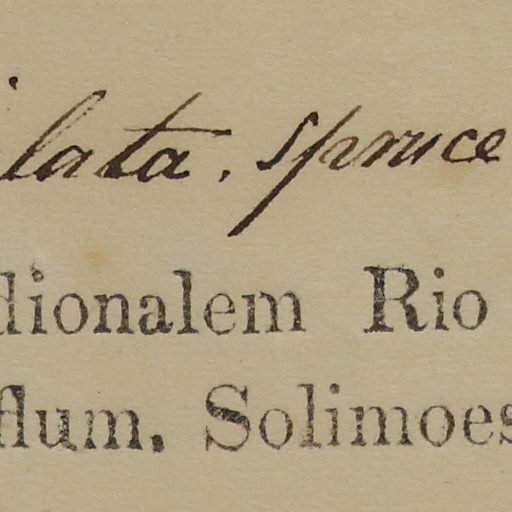 lata. spruce
dionalem Rio
flum. Solimoes